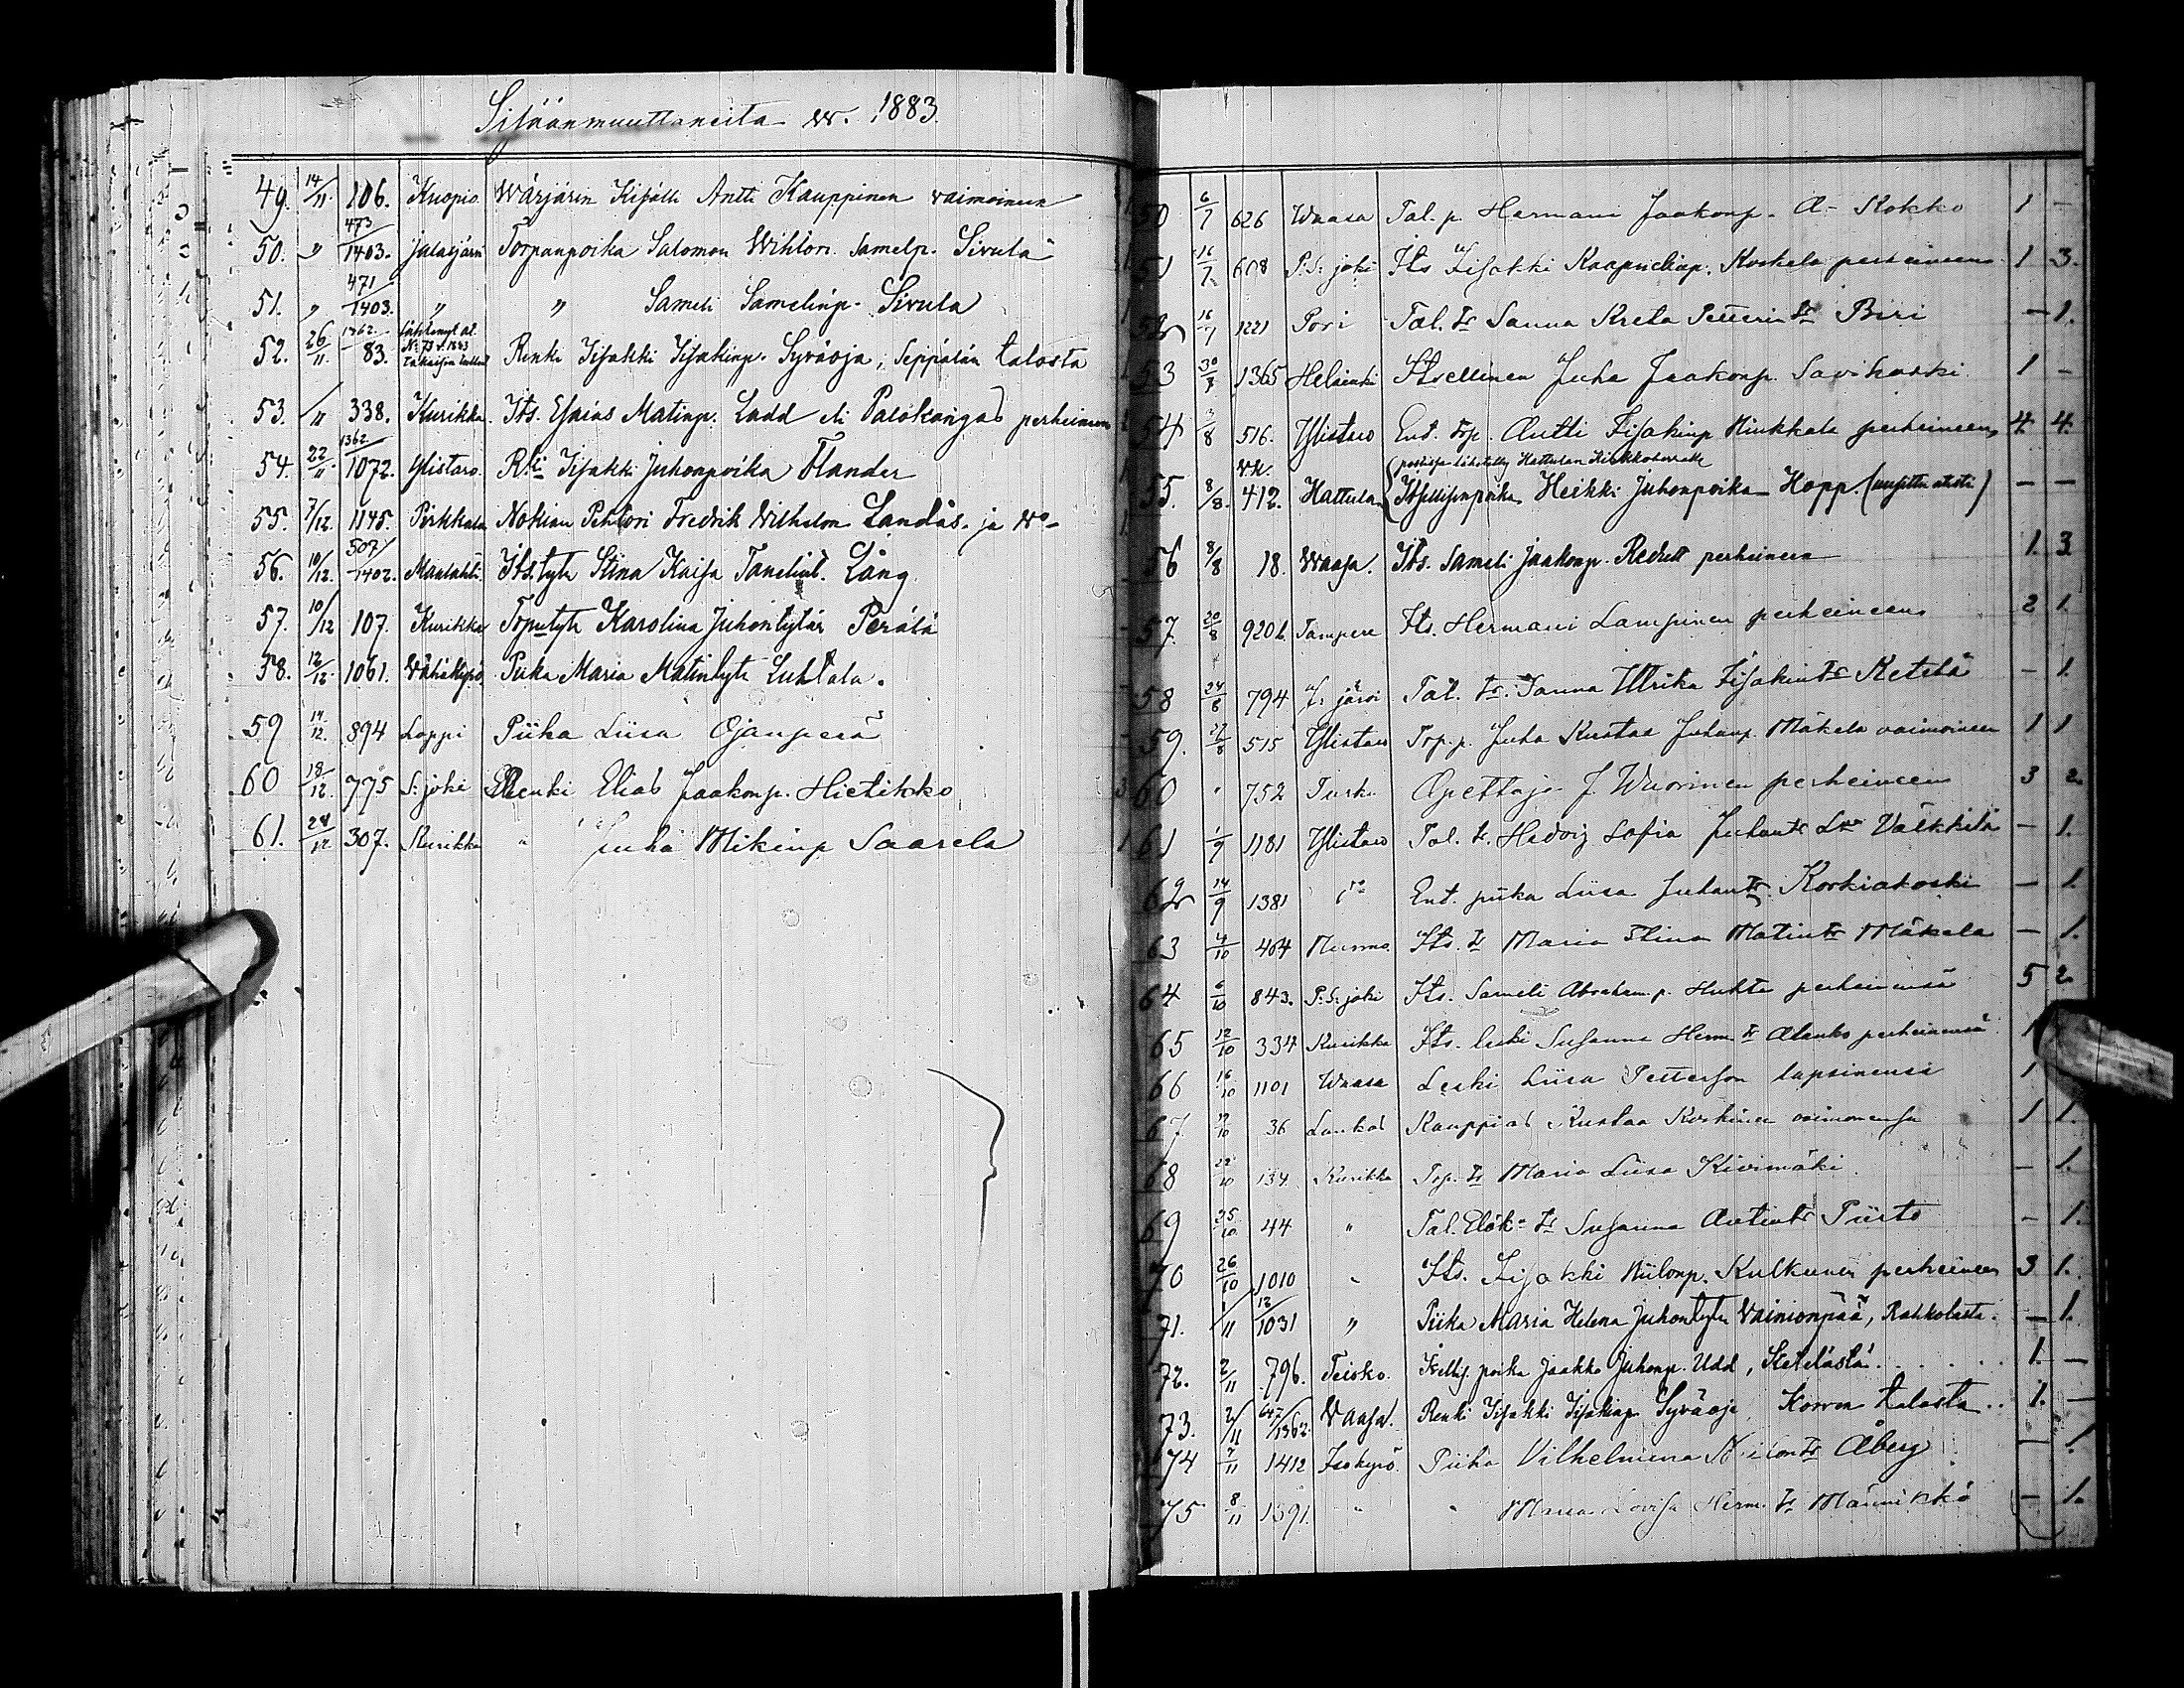 Sisäänmuuttaneita w. 1883.
49. 14/11 106. Kuopio Wärjärin Kisälli Antti Kauppinen vaimoineen
50. " 473/1403. Jalasjärvi Torpanpoika Salomon Wihtori Samelp. Sivula
51. " 471/1403. " " Sameli Samelinp. Sivula
52. 26/11. 1362/83. N:o 73 v. 1883 Renki Iisakki Iisakinp. Syväoja, Seppälän talosta
53. " 338. Kurikka. Its. Esaias Matinp. Ladd eli Palokangas perheineen
54. 22/11 1362/1072. Ylistaro. R:ki Iisakki Juhonpoika Flander
55. 7/12. 1145. Pirkkala Nokian Pehtori Fredrik Wilhelm Landås. ja Wo
56. 10/12. 507/1402. Maalahti. Its. tytr Stina Kaisa Tanelint. Lång
57. 10/12 107. Kurikka Torp. tytr Karolina Juhontytär Perälä
58. 12/12 1061. Vähäkyrö Piika Maria Matintytr Luhtala.
59 14/12. 894 Loppi Piika Liisa Ojanperä
60 18/12. 775 S:joki Renki Elias Jaakonp. Hietikko
61. 28/12 307. Kurikka " Juha Mikinp Saarela
50 6/7 626 Waasa Tal. p. Hermani Jaakonp. A- Kokko 1 -
51 16/7 608 P.S:joki Its Iisakki Kaapelinp. Koskela perheineens 1 3.
52 16/7 1221 Pori Tal. tr Sanna Kreta Petterin tr Piri - 1.
53 30/7 1365 Helsinki Itsellinen Juha Jaakonp. Savikoski 1 -
54 3/8 516. Ylistaro Ent. Trp. Antti Iisakinp Niukkala perheineens 4. 4.
55. 8/8. W.K. 412. Hattula Itsellisenpoika Heikki Juhonpoika Hopp. - -
56 8/8 18. Waasa. Its. Sameli Jaakonp. Redutt perheineen 1. 3
57. 20/8 920 b. Tampere Its. Hermani Lampinen perheineens 2 1.
58 24/8 794 Tal. tr. Sanna Ulrika Iisakintr Ketelä - 1.
59. 27/8 515 Ylistaro Trp. p. Juha Kustaa Juhanp. Mäkelä vaimoineen 1 1
60 " 752 Turku Opettaja J. Wuorinen perheineen 3 2.
61 1/9 1181 Ylistaro Tal. tr. Hedvig Sofia Juhantr Välkkilä - 1.
62 14/9 1381 Do Ent. piika Liisa Juhantr. Korkiakoski - 1.
63 4/10 464 Nurmo. Its. tr Maria Stina Matintr Mäkelä - 1.
64 6/10 843. P.S:joki Its. Sameli Abraham.p. Huhta perheinensä 5 2.
65 12/10 334 Kurikka Its. leski Susanna Herm. tr Alanko perheinensä 1
66 16/10 1101 Waasa Leski Liisa Petterson lapsinensa 1
67. 19/10 36 Laukas Kauppias Kustaa Koskinen vaimonensa 1 1.
68 22/10 134. Kurikka Trp. tr Maria Liisa Kivimäki. - 1.
69 25/10 44 " Tal. Elök- tr Susanna Antintr Piirto - 1.
70 26/10 1010 " Its. Iisakki Niilonp. Kulkunen perheineen 3 1.
71. 1/11 12/1031 " Piika Maria Helena Juhontytr Vainionpää, Rahkolasta. - 1.
72. 2/11 796. Teisko. Itsellis. poika Jaakko Juhonp. Udd, Ketelästä. 1. -
73. 2/11 647/1362. Vaasa. Renki Iisakki Iisakinp. Syväoja Korven talosta. 1. -
74 7/11 1412 Isokyrö. Piika Vilhelmiina Niilontr Åberg - 1.
75 8/11 1391. " " Maria Lovisa Herm. tr Männikkö - 1.